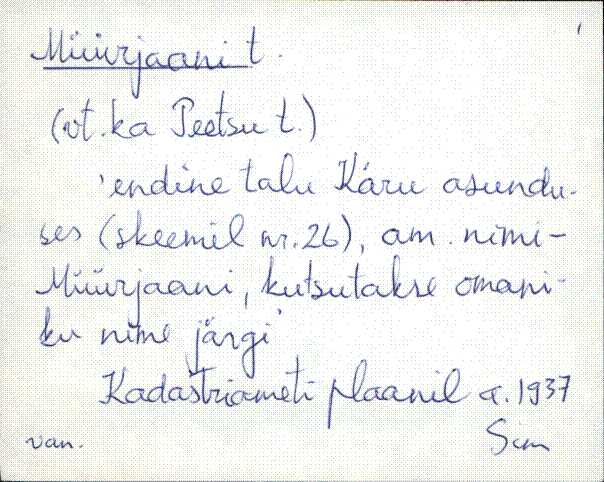 Müürjaani t.
(vt. ka Peetsu t.)
'endine talu Käru asundu-
ses (skeemil nr. 26), am. nimi -
Müürjaani, kutsutakse omani-
ku nime järgi'
Kadastriameti plaanil a. 1937
Sim
van.